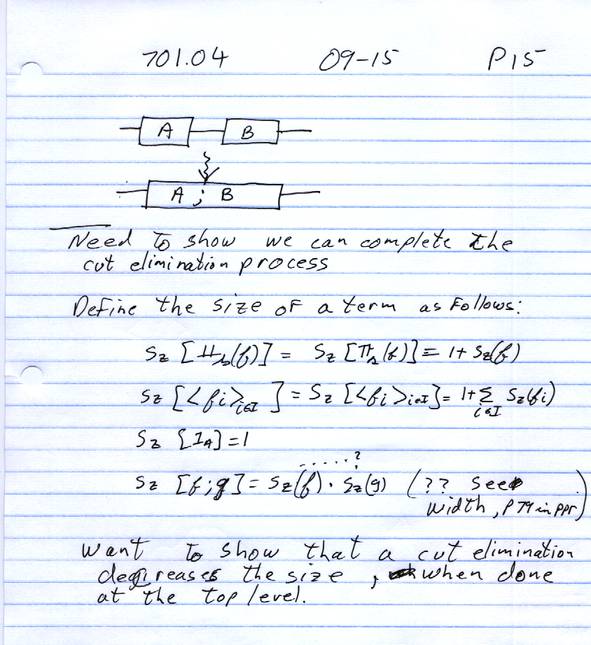 701.04 09-15 P15
A B
A ; B
Need to show we can complete the
cut elimination process
Define the size of a term as follows:
Sz [∐_b(f)] = Sz [π_a(f)] = 1 + Sz(f)
Sz [<fi>_{i∈I}] = Sz [<fi>_{i∈I}] = 1 + Σ_{i∈I} Sz(fi)
Sz [I_A] = 1
Sz [f;g] = Sz(f) · Sz(g) (?? See
.....?
width, P 79 in ppr)
Want to show that a cut elimination
decreases the size, when done
at the top level.